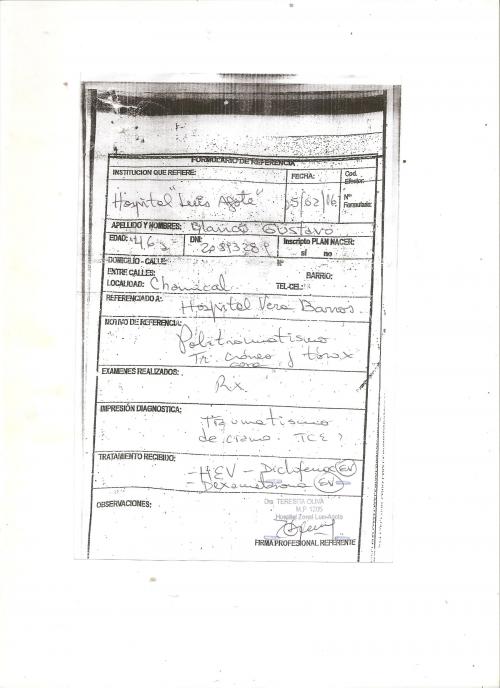 FORMULARIO DE REFERENCIA
INSTITUCION QUE REFIERE:
FECHA:
Cod. Efector:
Hospital "Luis Agote"
25/02/16
Nº Formulario:
APELLIDO Y NOMBRES: Gustavo
EDAD: 46
DNI:
Inscripto PLAN NACER:
si no
DOMICILIO - CALLE:
Nº
ENTRE CALLES:
BARRIO:
LOCALIDAD: Chamical
TEL-CEL:
REFERENCIADO A: Hospital Vera Barros
MOTIVO DE REFERENCIA:
Politraumatismo
Tr. cráneo y tórax
cara
EXAMENES REALIZADOS:
Rx
IMPRESIÓN DIAGNOSTICA:
Traumatismo
de craneo TCE ?
TRATAMIENTO RECIBIDO:
- HEV - Diclofenac EV
- Dexametasona EV
OBSERVACIONES:
Dra. TERESITA OLIVA
M.P. 1205
Hospital Zonal Luis Agote
FIRMA PROFESIONAL REFERENTE